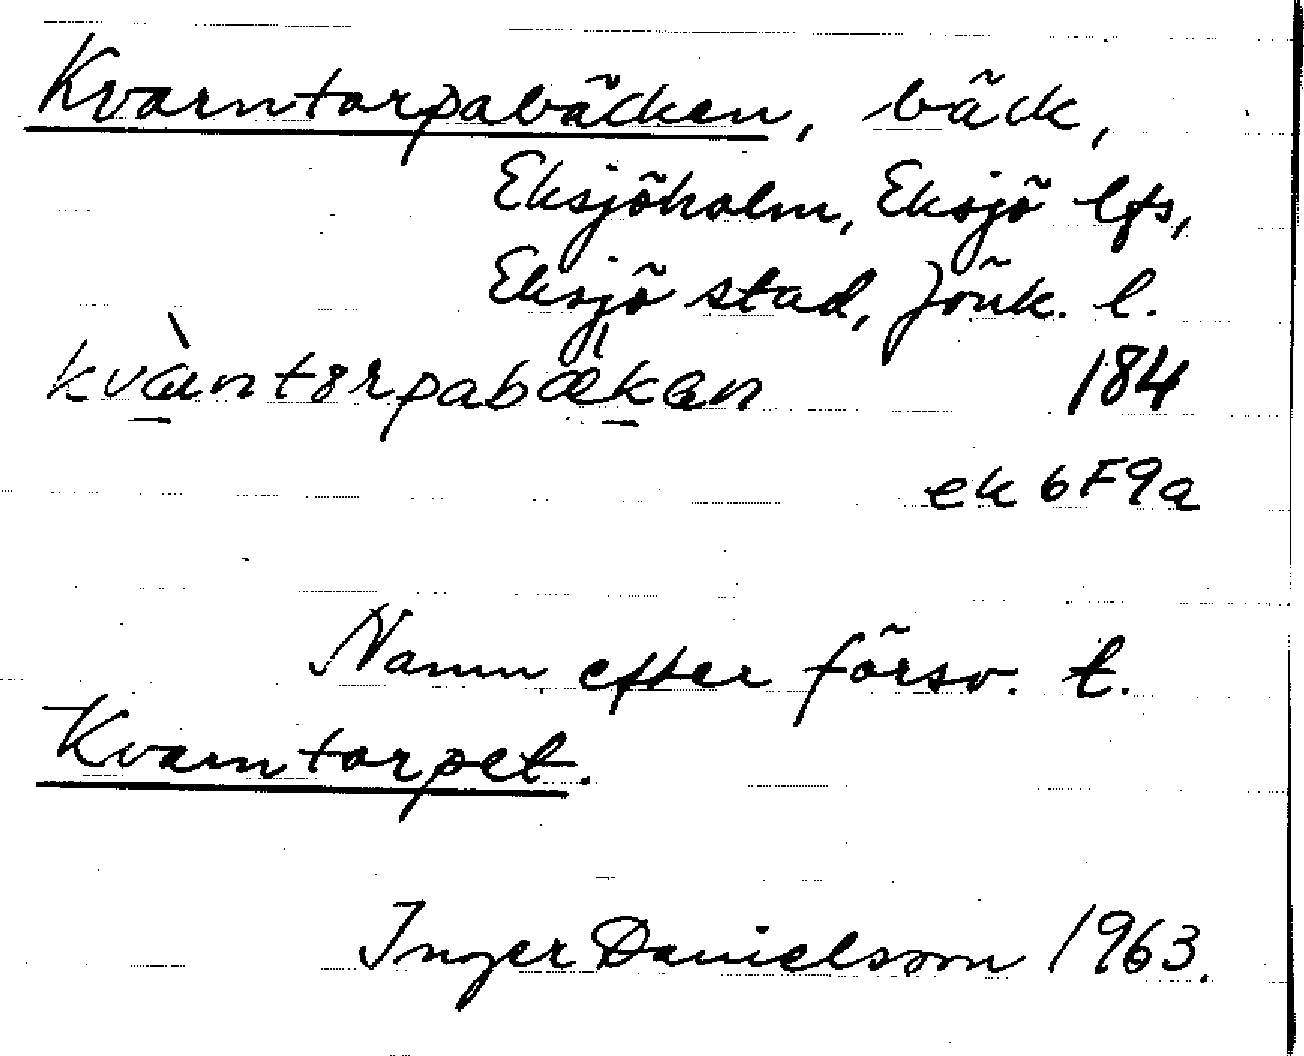 Kvarntorpabäcken, bäck,
Eksjöholm, Eksjö lfs,
Eksjö stad, Jönk. l.
kvàntørpabækan 184
ek 6F9a
Namn efter försv. t.
Kvarntorpet.
Inger Danielsson 1963.